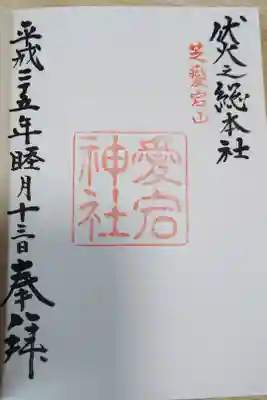 伏火之総本社
芝愛宕山
愛宕
神社
平成二五年睦月十三日
奉拝